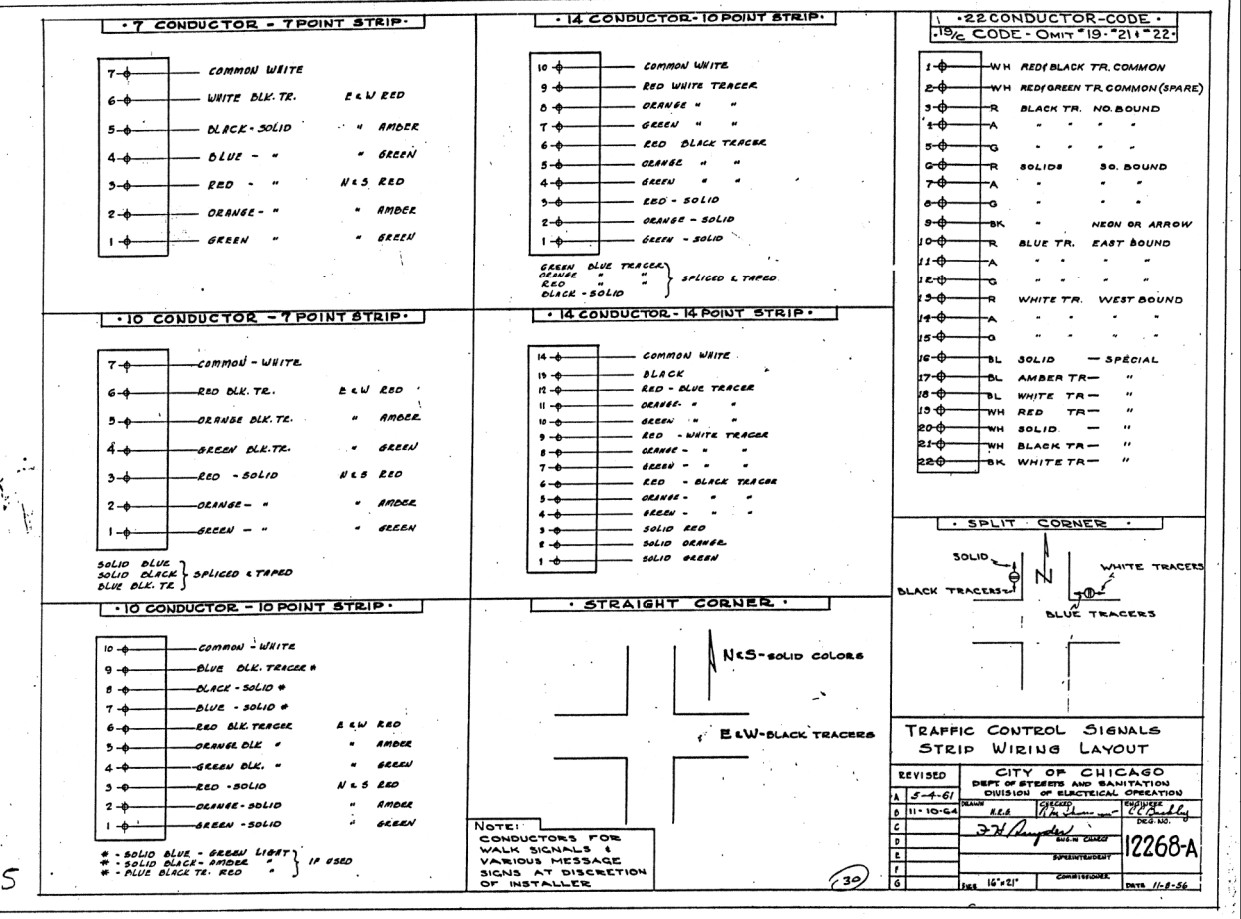 · 7 CONDUCTOR - 7 POINT STRIP ·
7 COMMON WHITE
6 WHITE BLK. TR. E & W RED
5 BLACK - SOLID " AMBER
4 BLUE - " " GREEN
3 RED - " N & S RED
2 ORANGE - " " AMBER
1 GREEN " " GREEN
· 10 CONDUCTOR - 7 POINT STRIP ·
7 COMMON - WHITE
6 RED BLK. TR. E & W RED
5 ORANGE BLK. TR. " AMBER
4 GREEN BLK. TR. " GREEN
3 RED - SOLID N & S RED
2 ORANGE - " " AMBER
1 GREEN - " " GREEN
SOLID BLUE
SOLID BLACK } SPLICED & TAPED
BLUE BLK. TR.
· 10 CONDUCTOR - 10 POINT STRIP ·
10 COMMON - WHITE
9 BLUE BLK. TRACER #
8 BLACK - SOLID #
7 BLUE - SOLID #
6 RED BLK. TRACER E & W RED
5 ORANGE BLK " " AMBER
4 GREEN BLK. " " GREEN
3 RED - SOLID N & S RED
2 ORANGE - SOLID " AMBER
1 GREEN - SOLID " GREEN
# - SOLID BLUE - GREEN LIGHT
# - SOLID BLACK - AMBER " } IF USED
# - BLUE BLACK TR. RED "
5
· 14 CONDUCTOR - 10 POINT STRIP ·
10 COMMON WHITE
9 RED WHITE TRACER
8 ORANGE " "
7 GREEN " "
6 RED BLACK TRACER
5 ORANGE " "
4 GREEN " "
3 RED - SOLID
2 ORANGE - SOLID
1 GREEN - SOLID
GREEN BLUE TRACER
ORANGE " "
RED " " } SPLICED & TAPED
BLACK - SOLID
· 14 CONDUCTOR - 14 POINT STRIP ·
14 COMMON WHITE
13 BLACK
12 RED - BLUE TRACER
11 ORANGE - " "
10 GREEN " "
9 RED - WHITE TRACER
8 ORANGE - " "
7 GREEN - " "
6 RED - BLACK TRACER
5 ORANGE - " "
4 GREEN - " "
3 SOLID RED
2 SOLID ORANGE
1 SOLID GREEN
· STRAIGHT CORNER ·
N & S - SOLID COLORS
E & W - BLACK TRACERS
NOTE:
CONDUCTORS FOR
WALK SIGNALS &
VARIOUS MESSAGE
SIGNS AT DISCRETION
OF INSTALLER
30
· 22 CONDUCTOR - CODE ·
· 19/C CODE - OMIT #19 - #21 & #22 ·
1 WH RED & BLACK TR. COMMON
2 WH RED & GREEN TR. COMMON (SPARE)
3 R BLACK TR. NO. BOUND
4 A " " " "
5 G " " " "
6 R SOLIDS SO. BOUND
7 A " " "
8 G " " "
9 BK " NEON OR ARROW
10 R BLUE TR. EAST BOUND
11 A " " " "
12 G " " " "
13 R WHITE TR. WEST BOUND
14 A " " " "
15 G " " " "
16 BL SOLID - SPECIAL
17 BL AMBER TR - "
18 BL WHITE TR - "
19 WH RED TR - "
20 WH SOLID - "
21 WH BLACK TR - "
22 BK WHITE TR - "
· SPLIT CORNER ·
SOLID
N
WHITE TRACERS
BLACK TRACERS
BLUE TRACERS
TRAFFIC CONTROL SIGNALS
STRIP WIRING LAYOUT
REVISED
A 5-4-61
B 11-10-64
C
D
E
F
G
CITY OF CHICAGO
DEPT OF STREETS AND SANITATION
DIVISION OF ELECTRICAL OPERATION
DRAWN H.R.G. CHECKED ENGINEER
ENG. IN CHARGE
SUPERINTENDENT
COMMISSIONER
DRG. NO.
12268-A
SIZE 16"x21"
DATE 11-8-56